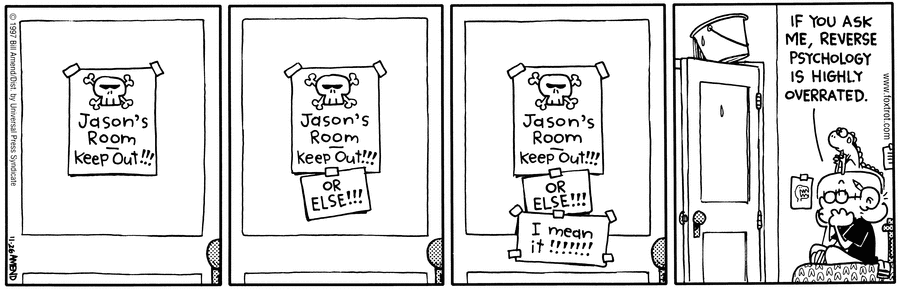 © 1997 Bill Amend/Dist. by Universal Press Syndicate
11-26 AMEND
Jason's
Room
Keep Out!!!
Jason's
Room
Keep Out!!!
OR
ELSE!!!
Jason's
Room
Keep Out!!!
OR
ELSE!!!
I mean
it !!!!!!!
IF YOU ASK
ME, REVERSE
PSYCHOLOGY
IS HIGHLY
OVERRATED.
www.foxtrot.com